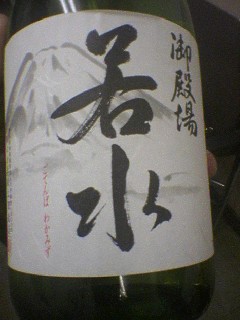 御殿場
若水
ごてんば わかみず